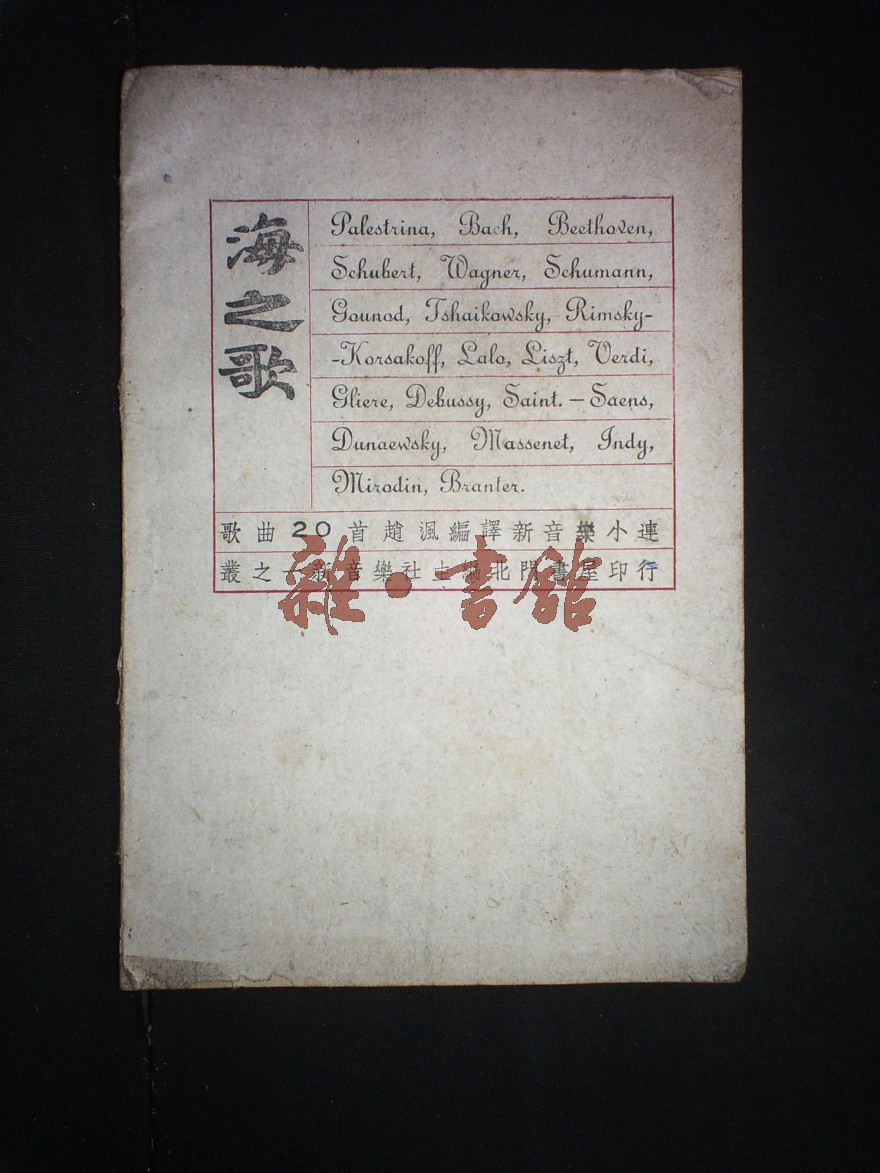 海之歌
Palestrina, Bach, Beethoven,
Schubert, Wagner, Schumann,
Gounod, Tshaikowsky, Rimsky-
-Korsakoff, Lalo, Liszt, Verdi,
Gliere, Debussy, Saint. – Saens,
Dunaewsky, Massenet, Indy,
Mirodin, Branter.
歌曲20首趙渢編譯新音樂小連
叢之一新音樂社主編北門書屋印行
雜·書館